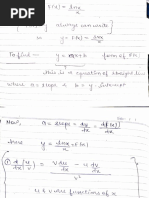 f(x) = lnx / x
[ always can write ]
or y = f(x) = lnx / x
To find — y = mx + b form of
this is a equation of straight line
where m = slope & b = y-intercept
Now, m = slope = dy/dx = d f(x)/dx
here y = lnx / x = f(x)
① d/dx (u/v) = v du/dx - u dv/dx / v²
u & v are functions of x